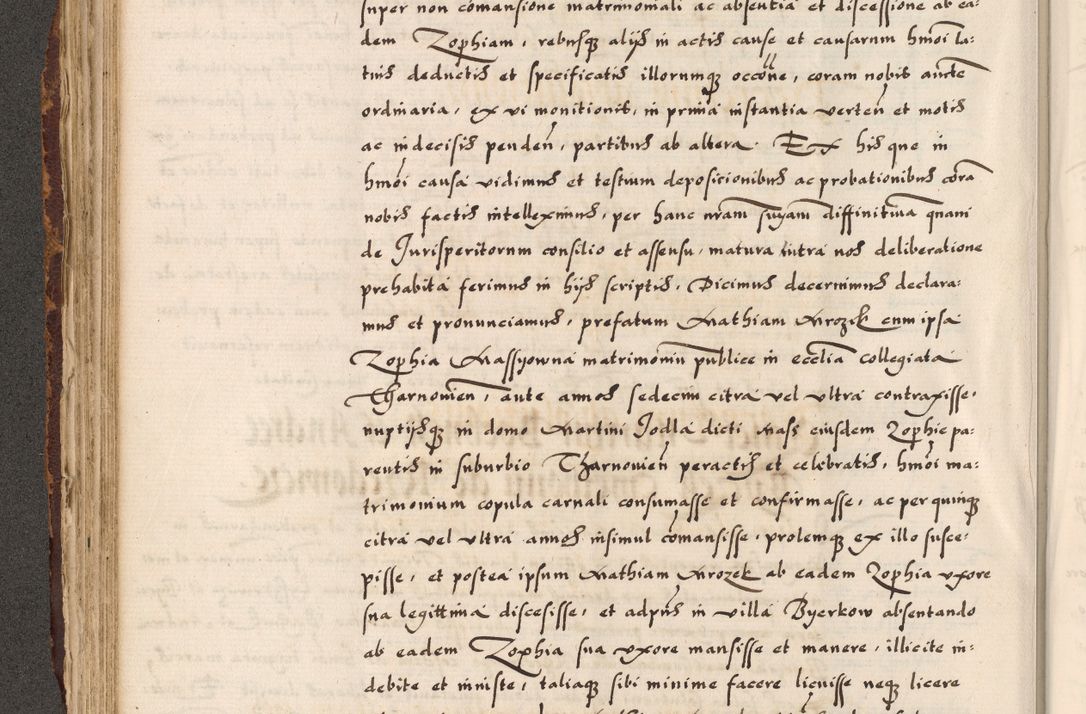 super non comansione matrimoniali ac absentia et discessione ab ea-
dem Zophiam, rebusq alijs in actis cause et causarum hmoi la-
tius deductis et specificatis illorumq occone, coram nobis aucte
ordinaria, ex vi monitionis, in prima instantia verten et motis
ac indecisis penden, partibus ab altera. Ex his que in
hmoi causa vidimus et testium deposicionibus ac probationibus cora
nobis factis intelleximus, per hanc nram suam diffinitiua quam
de Jurisperitorum consilio et assensu, matura intra nos deliberatione
prehabita ferimus in hijs scriptis, Dicimus decernimus declara-
mus et pronunciamus, prefatum Mathiam Mrozek cum ipsa
Zophia Massyowna matrimoniu publice in ecclia collegiata
Tharnouien, ante annos sedecim citra vel vltra contraxisse,
nuptijsq in domo Martini Jodla dicti Mass eiusdem Zophie pa-
rentis in suburbio Tharnouien peractis et celebratis, hmoi ma-
trimonium copula carnali consumasse et confirmasse, ac per quinq
citra vel vltra annos insimul comansisse, prolemq ex illo susce-
pisse, et postea ipsum Mathiam Mrozek ab eadem Zophia vxore
sua legittima discesisse, et adpns in villa Byerkow absentando
ab eadem Zophia sua vxore mansisse et manere, illicite in-
debite et iniuste, taliaq sibi minime facere licuisse neq licere